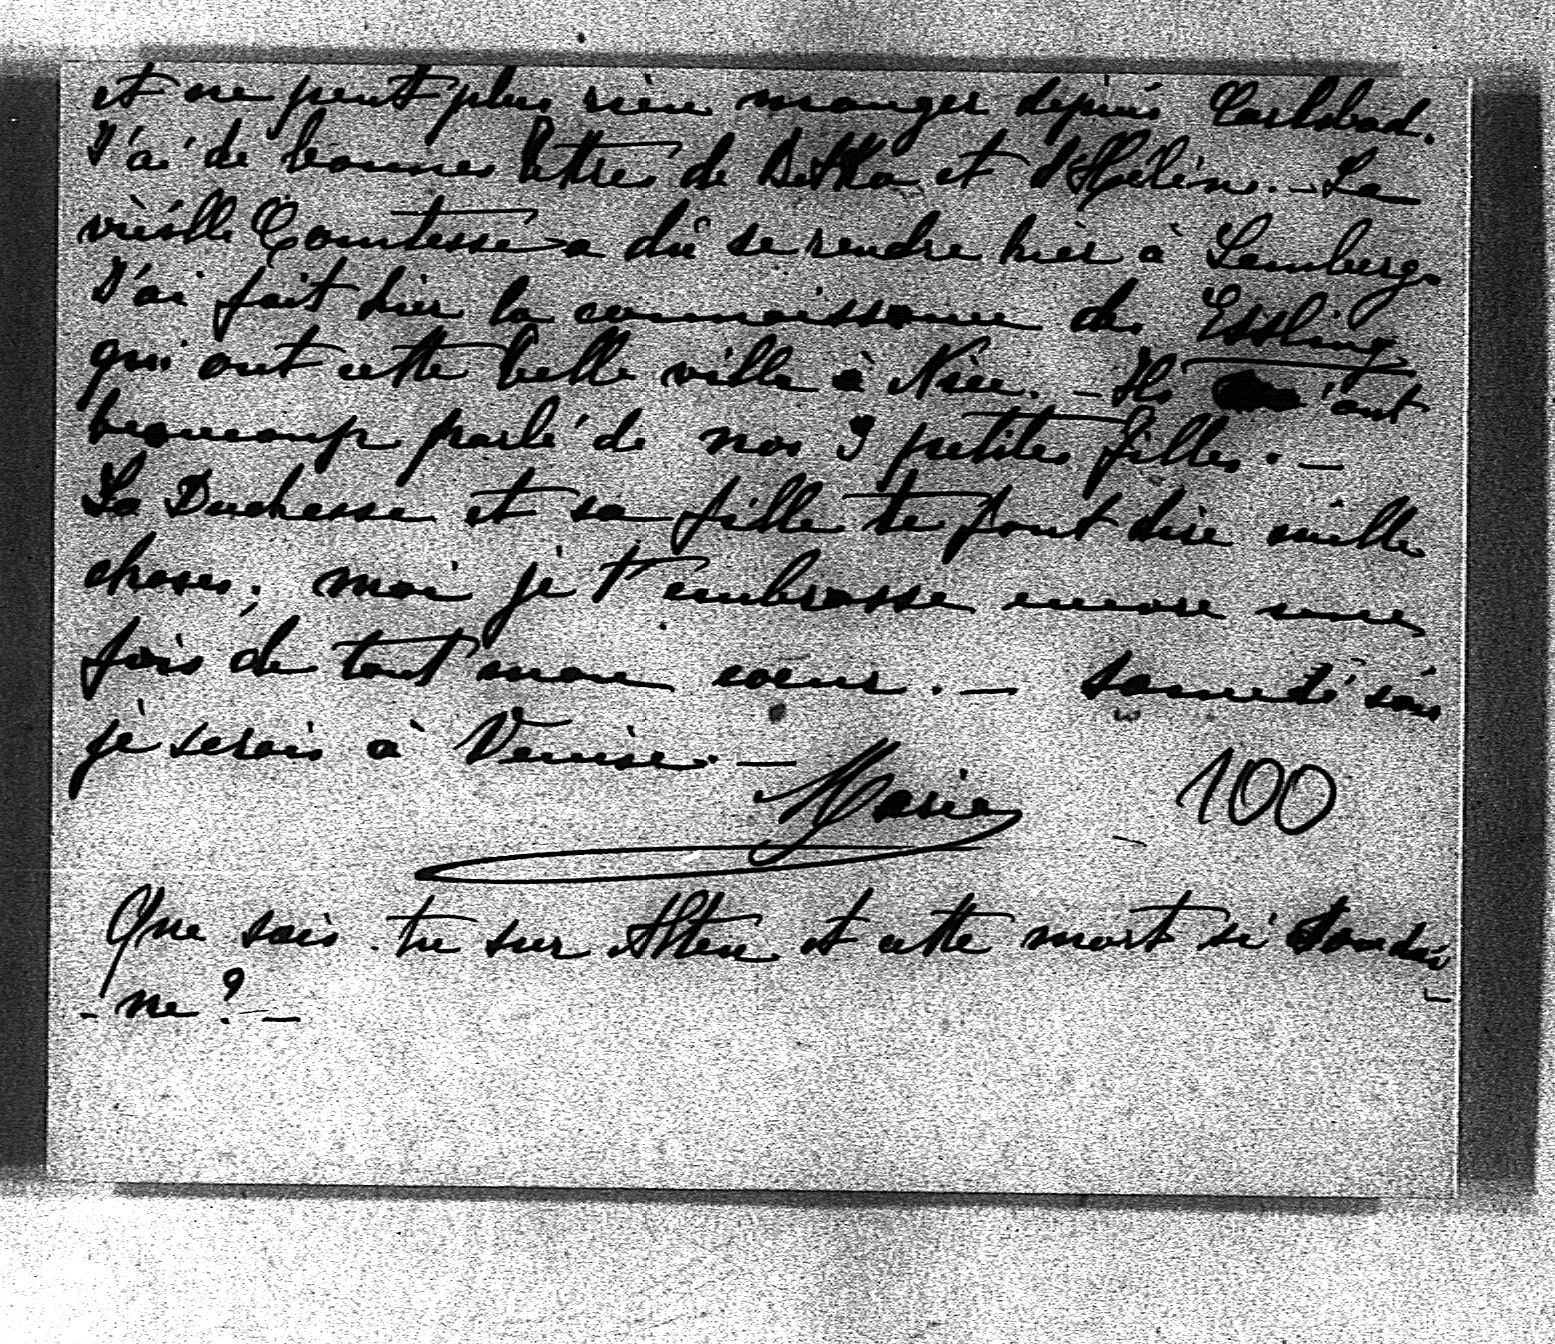 et ne peut plus rien manger depuis Carlsbad.
J'ai de bonnes lettres de Betka et d'Hélène. – La
vieille Comtesse a dû se rendre hier à Lemberg.
J'ai fait hier la connaissance des Essling
qui ont cette belle villa à Nice. – Ils m'ont
beaucoup parlé de nos 3 petites filles. –
La Duchesse et sa fille te font dire mille
choses; moi je t'embrasse encore une
fois de tout mon cœur. – Samedi soir
je serais à Venise. –
Marie
100
Que sais-tu sur Alten et cette mort si soudai-
-ne? –